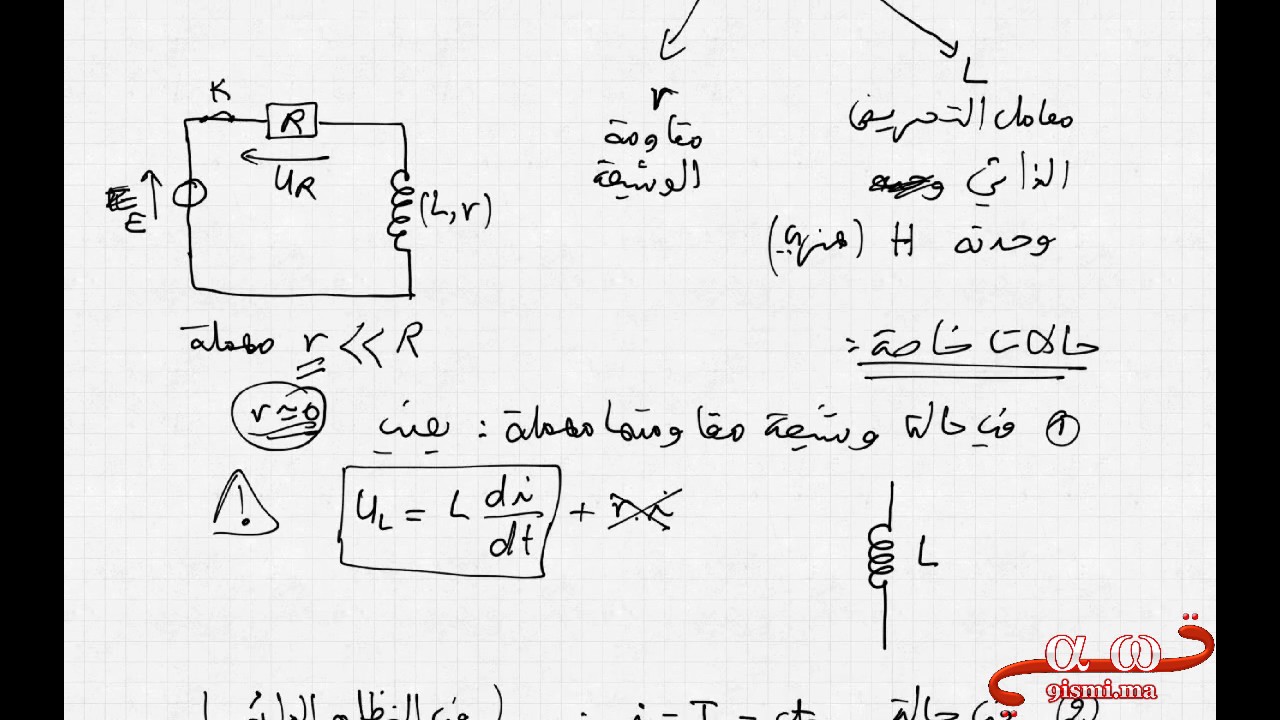 L
r
معامل التحريض
مقاومة
الذاتي
الوشيعة
وحدته H (هنري)
K
R
U_R
E
(L, r)
مهملة r << R
حالات خاصة :
① في حالة وشيعة مقاومتها مهملة : يعني r ≈ 0
!
U_L = L di/dt + r.i
L
② في حالة i = I = cte : (في النظام الدائم)
9ismi.ma